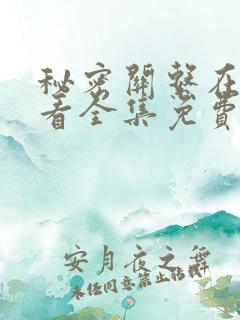 秘密關繫在
看全集免費
安月夜之舞
未经同意禁止转载